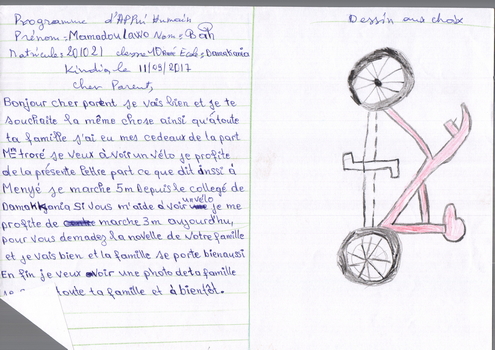 Programme d'APPui Humain
Prénom:= Mamadou Lawo Nom:= Bah
Matricule: 201021 classe 10 Ecole: Damakania
Kindia le 11/03/2017
cher Parent,
Bonjour cher parent je vais bien et je te
souhaite la même chose ainsi qu'à toute
ta famille j'ai eu mes cedeaux de la part
je veux à voir un vélo je profite
de la présente lettre part ce que dit ànssi à
je marche 5m depuis le college de
Damakania si vous m'aide à voir un velo je me
profite de marche 3m aujourd'hu,
pour vous demadez la novelle de votre famille
et je vais bien et la famille se porte bien aussi
En fin je veux voir une photo de ta famille
toute ta famille et à bientôt.
Dessin aux choix